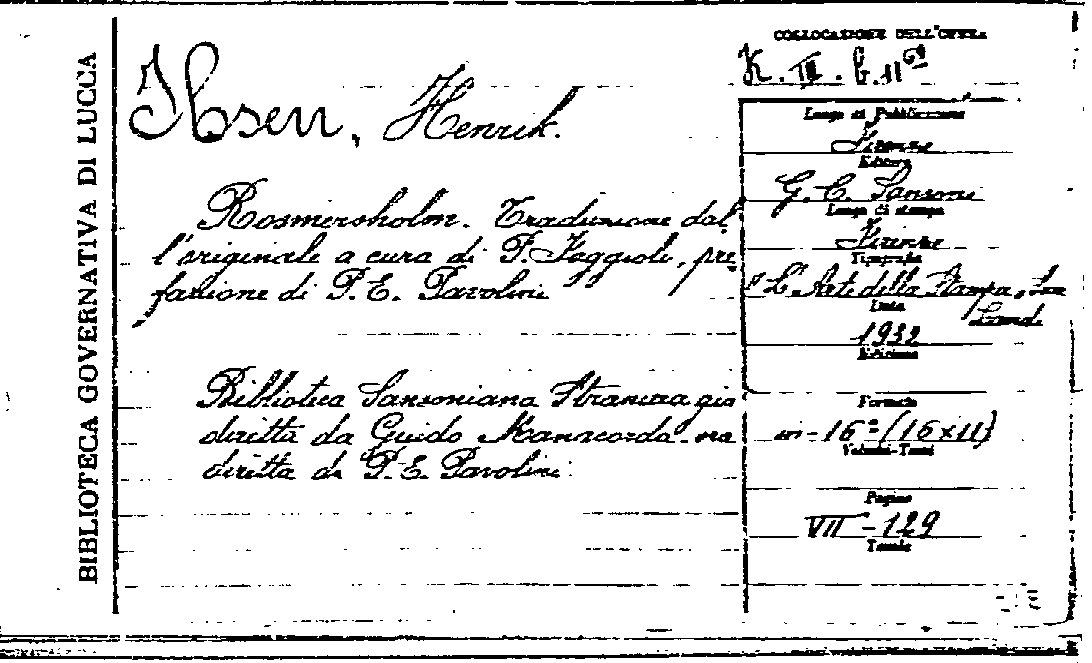 BIBLIOTECA GOVERNATIVA DI LUCCA
Ibsen, Henrik.
Rosmersholm. Traduzione dal
l'originale a cura di P. Faggioli, pre
fazione di P. E. Pavolini
Biblioteca Sansoniana Straniera già
diretta da Guido Manacorda - ora
diretta da P. E. Pavolini
COLLOCAZIONE DELL'OPERA
K. III. b. 11
Luogo di Pubblicazione
Firenze
Editore
G. C. Sansoni
Luogo di stampa
Firenze
Tipografia
L'Arte della Stampa,
Data
1932
Edizione
Formato
in-16º (16x11)
Volumi-Tomi
Pagine
VII-129
Tavole